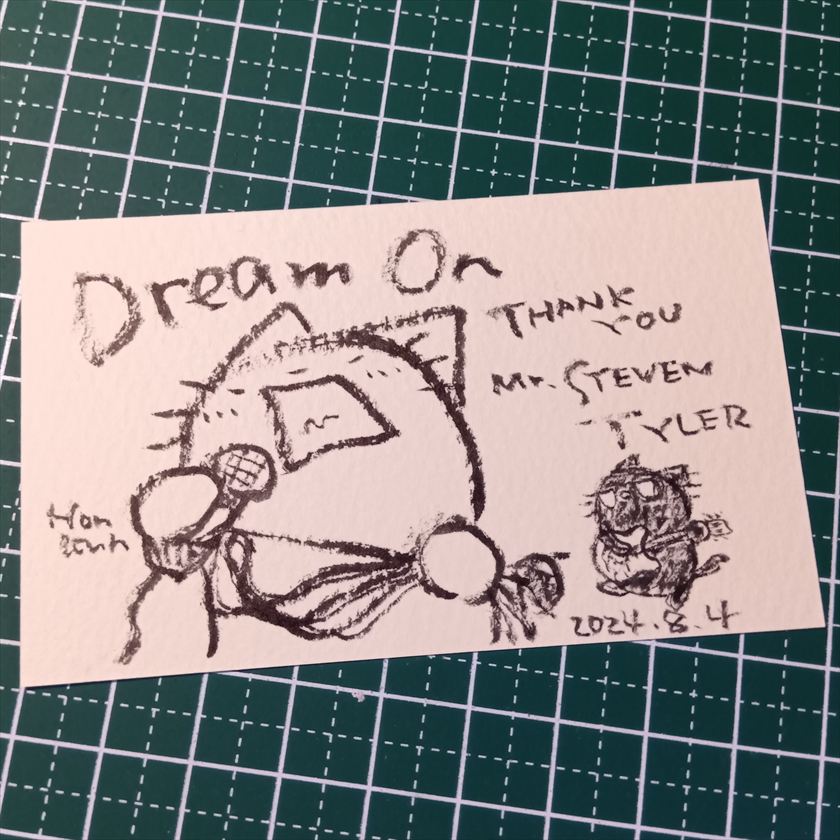 Dream On
THANK
YOU
Mr. STEVEN
TYLER
2024.8.4